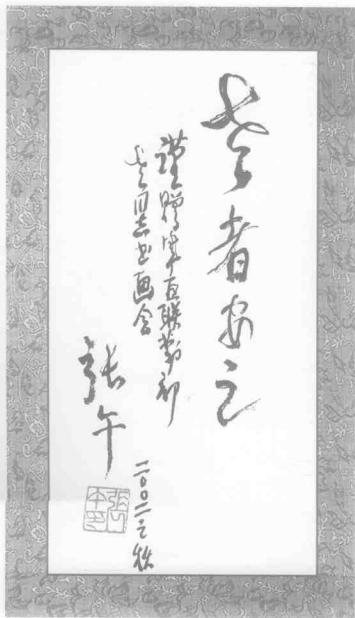 老者安之
謹贈直联勤部
老同志书画会
张午
二〇〇二之秋
张午之印